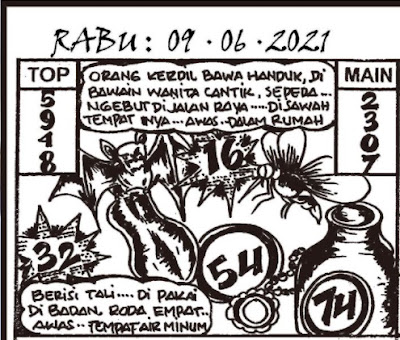 RABU : 09 · 06 · 2021
TOP
5
9
4
8
ORANG KERDIL BAWA HANDUK, DI
BAWAIN WANITA CANTIK, SEPEDA ...
NGEBUT DI JALAN RAYA ..... DI SAWAH
TEMPAT INYA... AWAS.. DALAM RUMAH
MAIN
2
3
0
7
16
32
54
74
BERISI TALI .... DI PAKAI
DI BADAN, RODA EMPAT..
AWAS.. TEMPAT AIR MINUM